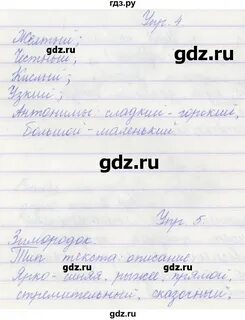 гдз.ру
Упр. 4
Жёлтый;
Честный;
gdz.ru
Кислый;
Узкий;
Антонимы: сладкий - горький,
большой - маленький.
gdz.ru
gdz.ru
Упр. 5.
Зимородок.
gdz.ru
Тип текста: описание
Ярко-синяя, рыжее, прямой,
стремительный, сказочный.
gdz.ru